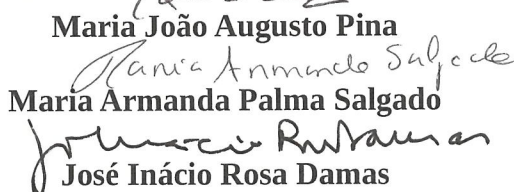 Maria João Augusto Pina
Maria Armanda Salgado
Maria Armanda Palma Salgado
José Inácio Rosa Damas